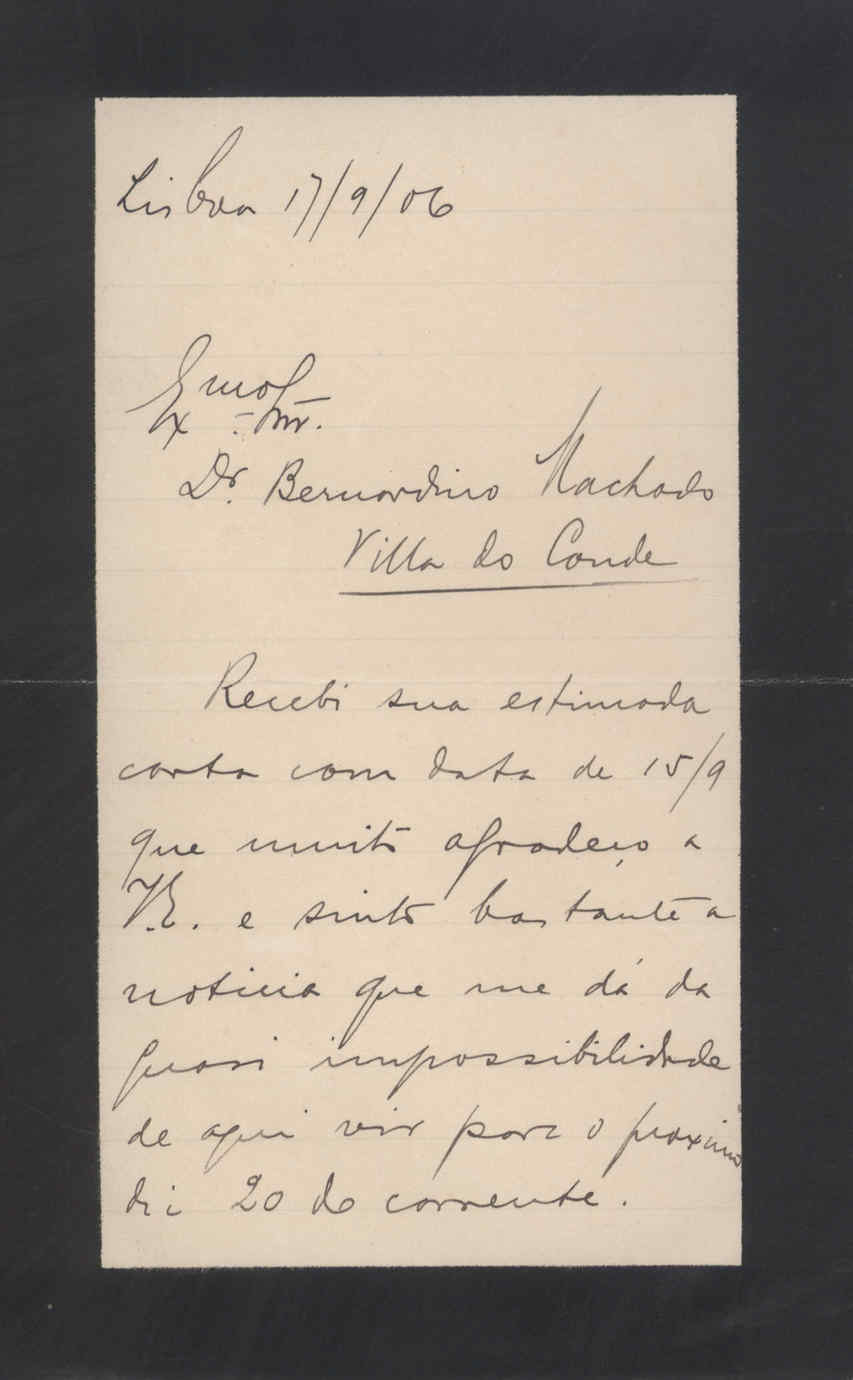 Lisboa 17/9/06
Exmo Snr.
Dr. Bernardino Machado
Villa do Conde
Recebi sua estimada
carta com data de 15/9
que muito agradeço a
V.E. e sinto bastante a
noticia que me dá da
quasi impossibilidade
de aqui vir para o proximo
dia 20 do corrente.